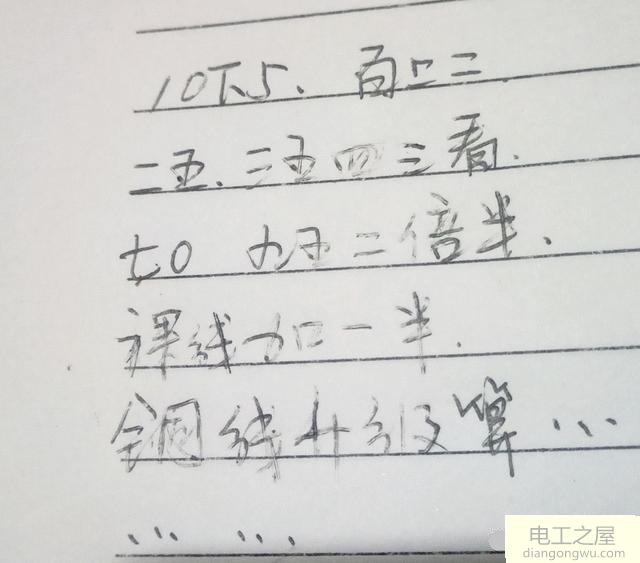 10下5、百上二
二五、三五四三看.
七0 九五二倍半、
裸线加一半.
铜线升级算…
… …
电工之屋
diangongwu.com